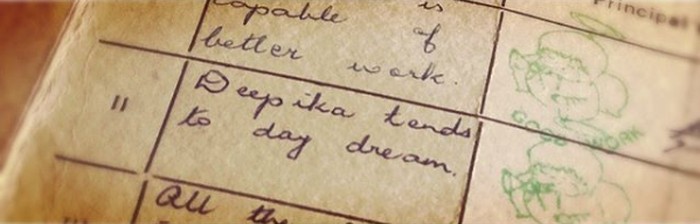 capable is
Principal
of
better work.
"
Deepika tends
to day dream.
GOOD WORK
All the